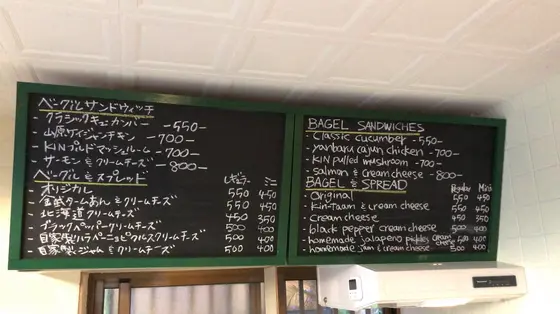 ベーグルサンドウィッチ
・クラシックキューカンバー -550-
・山原ケイジャンチキン -700-
・KINプルドマッシュルーム -700-
・サーモン&クリームチーズ -800-
ベーグル&スプレッド
レギュラー ミニ
・オリジナル 550 450
・金武ターあん&クリームチーズ 550 450
・北海道クリームチーズ 450 350
・ブラックペッパークリームチーズ 500 400
・自家製ハラペーニョピクルスクリームチーズ 500 400
・自家製ジャム&クリームチーズ 500 400
BAGEL SANDWICHES
・Classic cucumber -550-
・yanbaru cajun chicken -700-
・KIN pulled mushroom -700-
・salmon & cream cheese -800-
BAGEL & SPREAD
Regular Mini
・Original 550 450
・Kin-Taam & cream cheese 550 450
・cream cheese 450 350
・black pepper cream cheese 500 400
・homemade jalapeno pickles cream cheese 500 400
・homemade jam & cream cheese 500 400